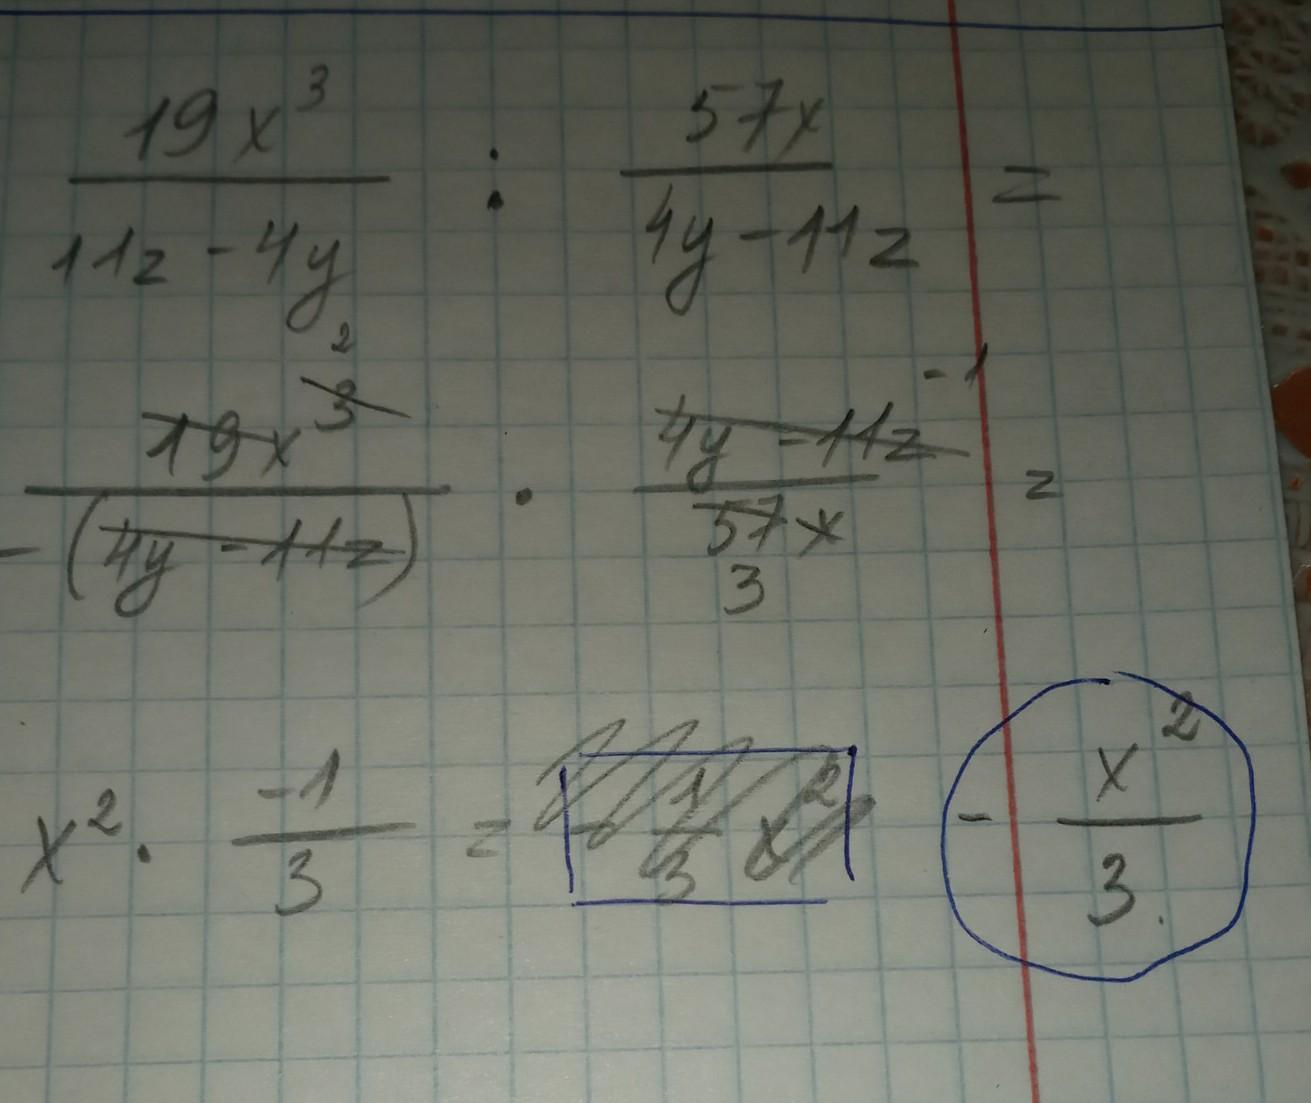 19x³ / (11z - 4y) : 57x / (4y - 11z) =
19x³ ² / -(4y - 11z) · 4y - 11z ⁻¹ / 57x 3 =
x² · -1 / 3 = - 1/3 x² - x² / 3.